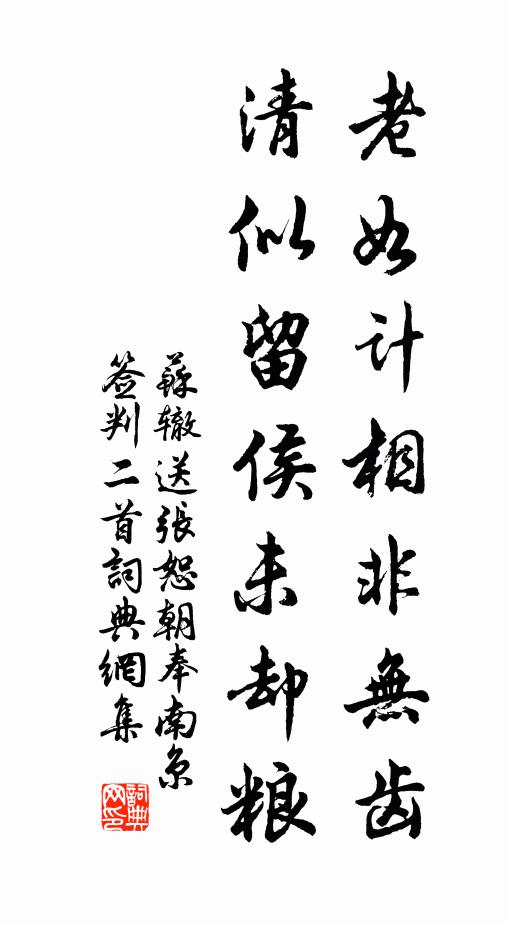 老如计相非無齿
清似留侯未却粮
蘇辙送張恕朝奉南京
签判二首詞典網集
詞典
网印